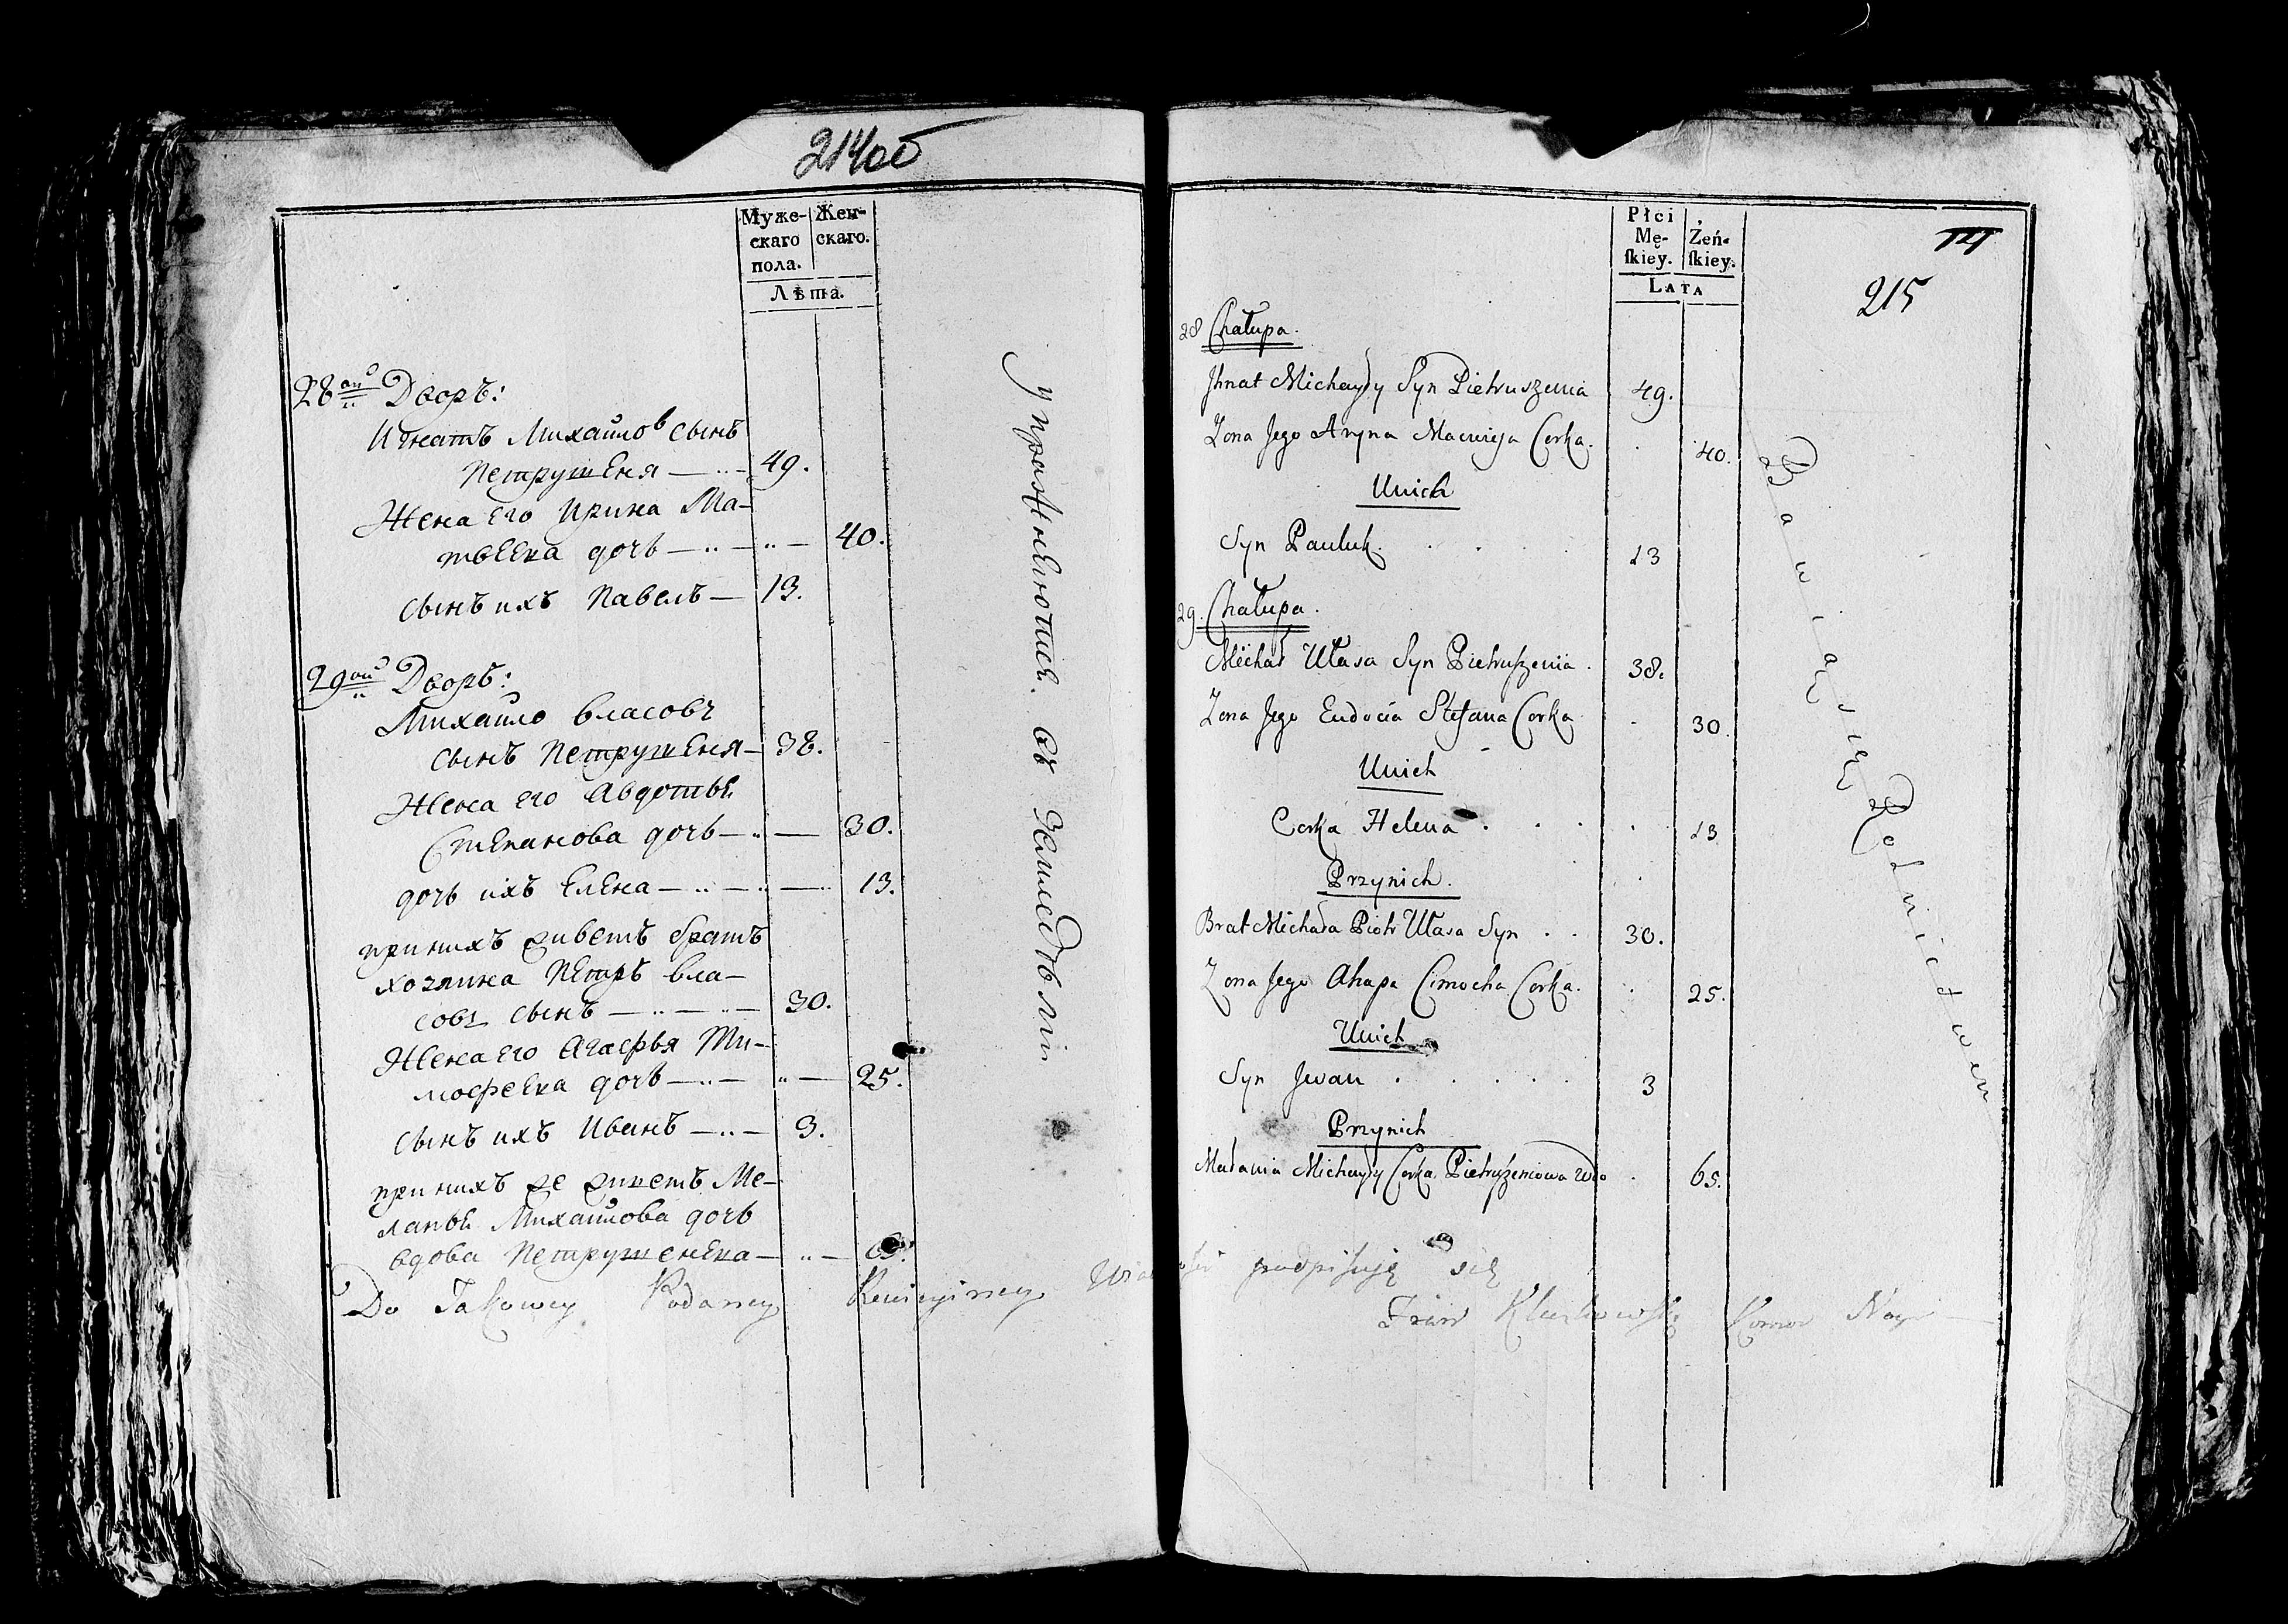 214об
Муже- Жен-
скаго скаго.
пола.
Лѣта.
28ой Дворъ:
Игнатъ Михайловъ сынъ
Петрушеня — 49.
Жена его Ирина Ма-
твеева дочь — 40.
сынъ ихъ Павелъ — 13.
29ой Дворъ:
Михайло Власовъ
сынъ Петрушеня — 38.
Жена его Авдотья
Степанова дочь — 30.
дочь ихъ Елена — 13.
при нихъ живетъ братъ
хозяина Петръ Вла-
совъ сынъ — 30.
Жена его Агафья Ти-
мофеева дочь — 25.
сынъ ихъ Иванъ — 3.
при нихъ же живетъ Ме-
ланья Михайлова дочь
вдова Петрушенева —
упражняются въ земледѣлии
Płci
Mę- Żeń-
skiey. skiey.
LATA
215
28 Chałupa.
Jhnat Michayły Syn Pietruszenia 49.
Zona Jego Aryna Macwieja Corka. 40.
Unich
Syn Pauluk. 13
29. Chałupa.
Michał Ułasa Syn Pietruszenia. 38.
Zona Jego Eudocia Stefana Corka 30.
Unich
Corka Helena 13
Przynich.
Brat Michała Piotr Ułasa Syn 30.
Zona Jego Ahapa Cimocha Corka. 25.
Unich
Syn Jwan 3
Przynich
Małania Michayły Corka Pietruszeniowa Wdo 65.
Bawią się Rolnictwem
Do Takowey Podaney Rewizyiney podpisuję się